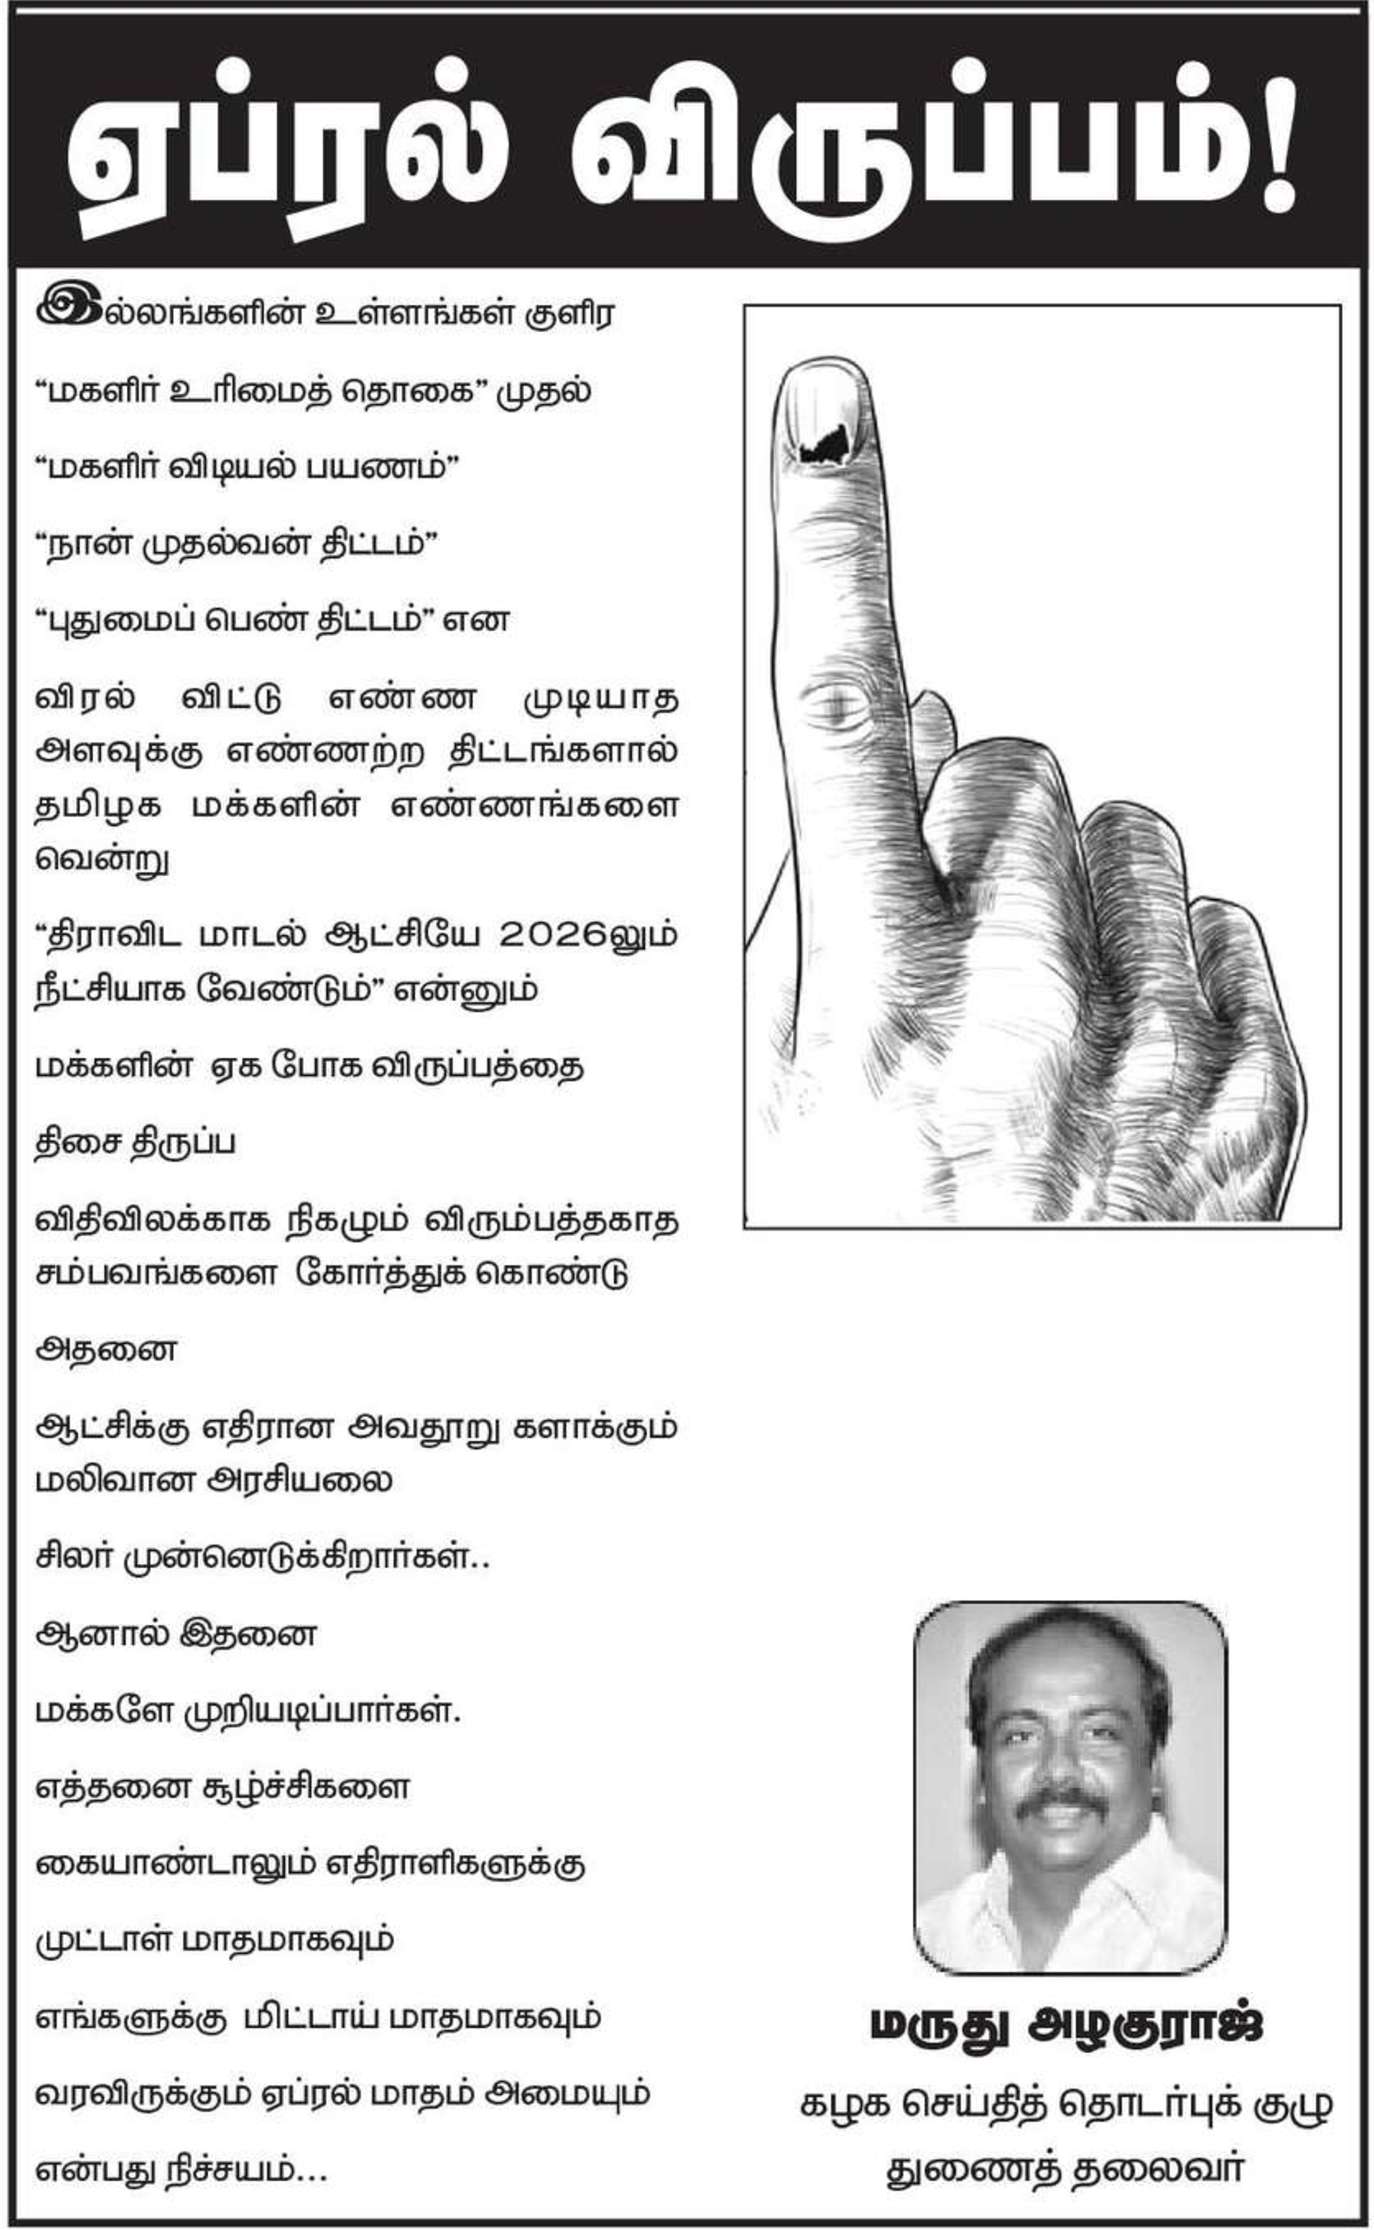 ஏப்ரல் விருப்பம்!
இல்லங்களின் உள்ளங்கள் குளிர
“மகளிர் உரிமைத் தொகை” முதல்
“மகளிர் விடியல் பயணம்”
“நான் முதல்வன் திட்டம்”
“புதுமைப் பெண் திட்டம்” என
விரல் விட்டு எண்ண முடியாத
அளவுக்கு எண்ணற்ற திட்டங்களால்
தமிழக மக்களின் எண்ணங்களை
வென்று
“திராவிட மாடல் ஆட்சியே 2026லும்
நீட்சியாக வேண்டும்” என்னும்
மக்களின் ஏக போக விருப்பத்தை
திசை திருப்ப
விதிவிலக்காக நிகழும் விரும்பத்தகாத
சம்பவங்களை கோர்த்துக் கொண்டு
அதனை
ஆட்சிக்கு எதிரான அவதூறு களாக்கும்
மலிவான அரசியலை
சிலர் முன்னெடுக்கிறார்கள்..
ஆனால் இதனை
மக்களே முறியடிப்பார்கள்.
எத்தனை சூழ்ச்சிகளை
கையாண்டாலும் எதிராளிகளுக்கு
முட்டாள் மாதமாகவும்
எங்களுக்கு மிட்டாய் மாதமாகவும்
வரவிருக்கும் ஏப்ரல் மாதம் அமையும்
என்பது நிச்சயம்...
மருது அழகுராஜ்
கழக செய்தித் தொடர்புக் குழு
துணைத் தலைவர்